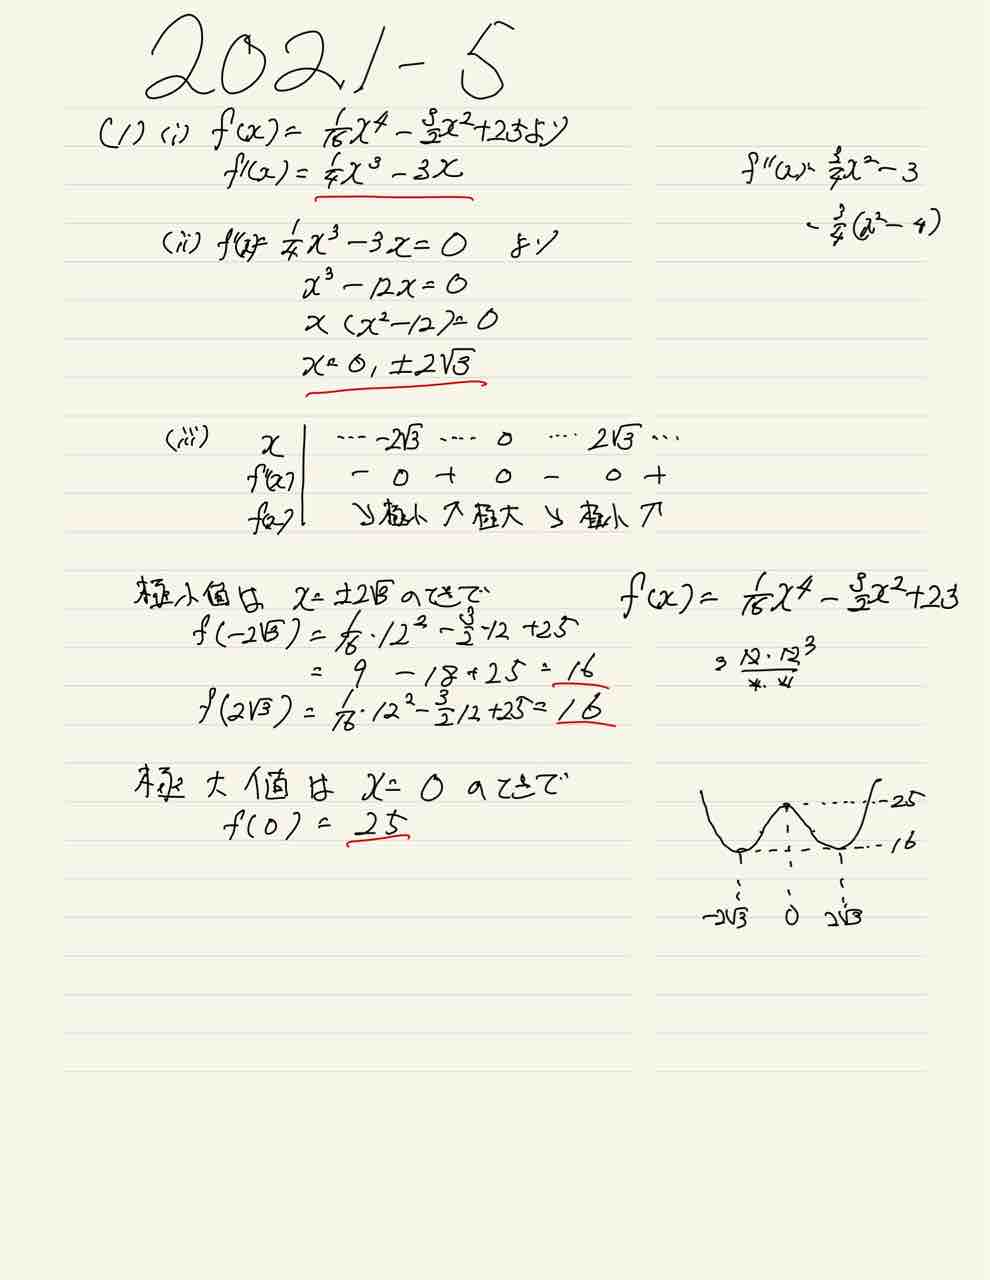 2021-5
(1) (i) f(x) = 1/16 x⁴ - 3/2 x² + 25より
f'(x) = 1/4 x³ - 3x
f''(x) = 3/4 x² - 3
= 3/4 (x² - 4)
(ii) f'(x) = 1/4 x³ - 3x = 0 より
x³ - 12x = 0
x (x² - 12) = 0
x = 0, ±2√3
(iii) x | ... -2√3 .... 0 .... 2√3 ...
f'(x) | - 0 + 0 - 0 +
f(x) | ↘ 極小 ↗ 極大 ↘ 極小 ↗
極小値は x = ±2√3 のときで
f(-2√3) = 1/16 · 12² - 3/2 · 12 + 25
= 9 - 18 + 25 = 16
f(2√3) = 1/16 · 12² - 3/2 12 + 25 = 16
f(x) = 1/16 x⁴ - 3/2 x² + 23
極大値は x = 0 のときで
f(0) = 25
25
16
-2√3 0 2√3